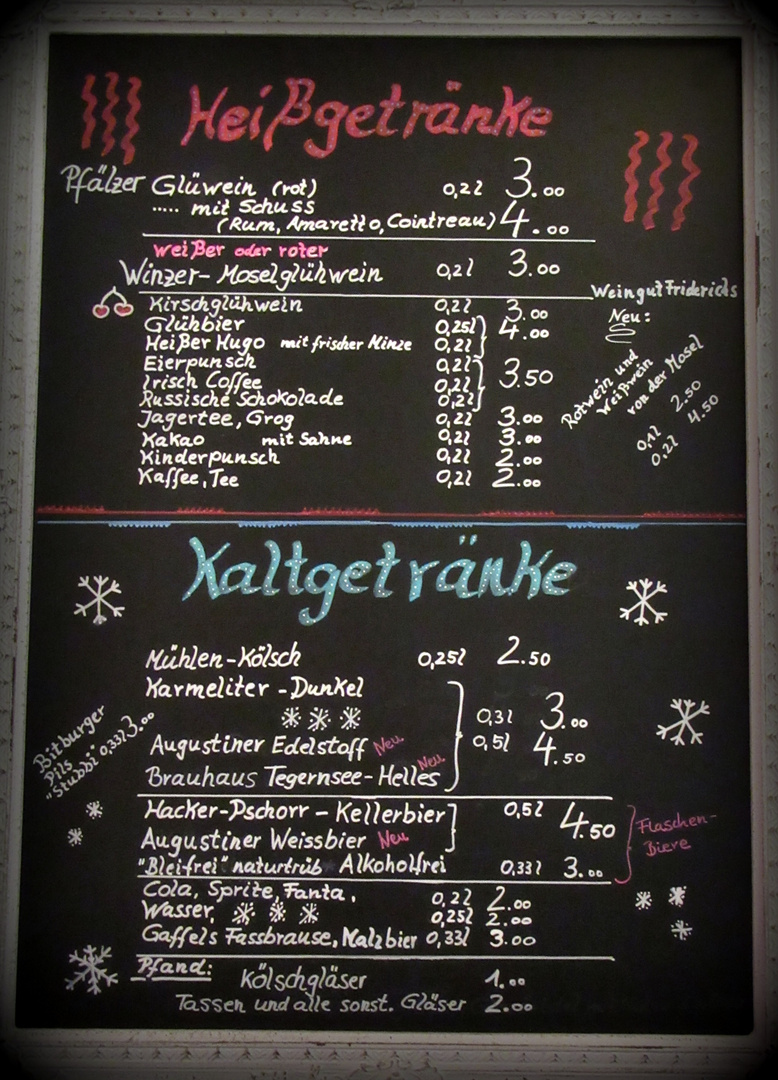 Heißgetränke
Pfälzer Glüwein (rot) 0,2l 3.00
..... mit Schuss
(Rum, Amaretto, Cointreau) 4.00
weißer oder roter
Winzer-Moselglühwein 0,2l 3.00
Kirschglühwein 0,2l 3.00
Glühbier 0,25l 4.00
Heißer Hugo mit frischer Minze 0,2l
Eierpunsch 0,2l
Irisch Coffee 0,2l 3.50
Russische Schokolade 0,2l
Jagertee, Grog 0,2l 3.00
Kakao mit Sahne 0,2l 3.00
Kinderpunsch 0,2l 2.00
Kaffee, Tee 0,2l 2.00
Weingut Friderichs
Neu:
Rotwein und
Weißwein
von der Mosel
0,1l 2.50
0,2l 4.50
Kaltgetränke
Mühlen-Kölsch 0,25l 2.50
Karmeliter-Dunkel
0,3l 3.00
Augustiner Edelstoff Neu 0,5l 4.50
Brauhaus Tegernsee-Helles Neu
Bitburger
Pils
"Stubbi" 0,33l 3.00
Hacker-Pschorr-Kellerbier 0,5l 4.50
Augustiner Weissbier Neu
"Bleifrei" naturtrüb Alkoholfrei 0,33l 3.00
Flaschen-
Biere
Cola, Sprite, Fanta, 0,2l 2.00
Wasser, 0,25l 2.00
Gaffels Fassbrause, Malzbier 0,33l 3.00
Pfand: Kölschgläser 1.00
Tassen und alle sonst. Gläser 2.00